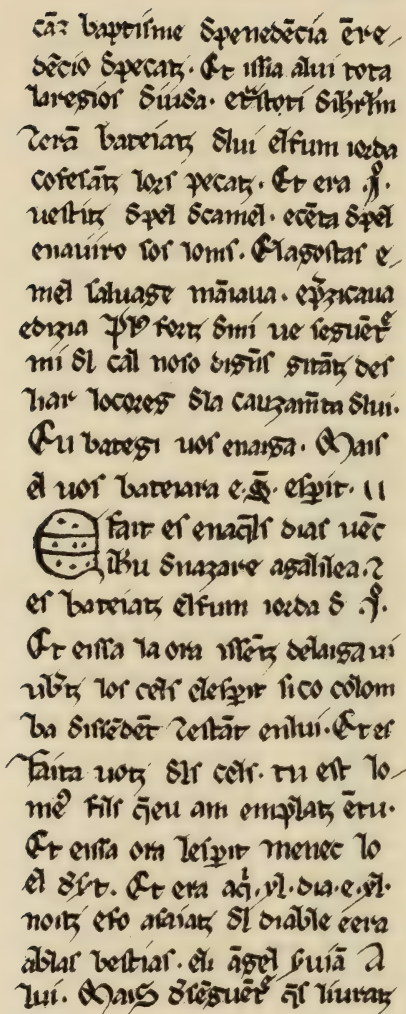 cāꝫ baptisme d̕penedēcia ēre/
dēcio d̕pecatꝫ. Et issia alui tota
laregios d̕iuda. et̄stoti d̕ihrlm̄
⁊erā bateiatꝫ d̕lui elfum iorda
cofesātꝫ lors pecatꝫ. Et era .J̊.
uestitꝫ d̕pel d̕camel. ecēta d̕pel
enauiro sos loms. Elagostas e/
mel saluage māiaua. ep̄zicaua
edizia P fortꝫ d̕mi ue seguētͬ
mi d̕l cal noso dignꝰs gitātꝫ des
liar locoreg d̕la cauzam̄ta d̕lui.
Eu bategi uos enaiga. Mais
el uos bateiara e.S̄. esp̄it. II
E fait es enaq̄ls dias uēc
ihū d̕nazare agalilea. ⁊
es bateiatꝫ elfum iorda d̕ .J̊.
Et eissa la ora issētꝫ delaiga ui
ub̄tꝫ los cels elesp̄it sico colom
ba dissēdēt ⁊estāt enlui. Et es
faita uotꝫ d̕ls cels. tu est lo/
meꝰ fils q̄eu am emplatꝫ ētu.
Et eissa ora lesp̄it menec lo
el d̕s̄t. Et era aq̍.xl.dia.e.xl.
noitꝫ efo asaiatꝫ d̕l diable eera
ablas bestias. eli āgel suiā A
lui. Mais d̕seguētͬ q̄s liuratꝫ